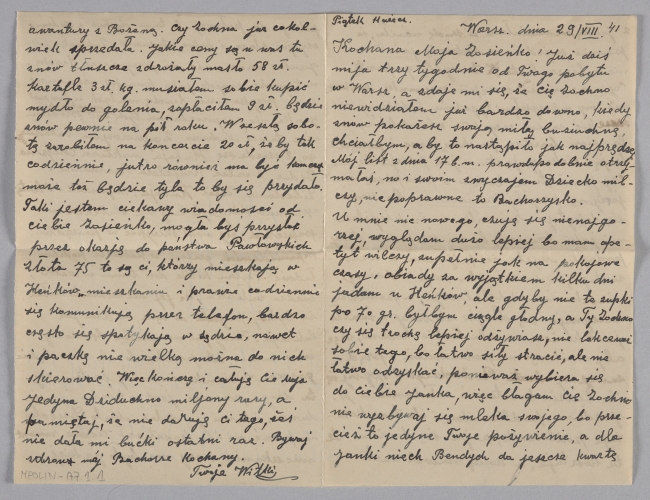 Piątek
Warsz. dnia 29/VIII 41
Kochana Moja Zosieńko! Już dziś
mija trzy tygodnie od Twego pobytu
w Warsz. a zdaje mi się, że Cię Zochno
niewidziałem już bardzo dawno, kiedy
znów pokażesz swoją miłą buziuchnę,
chciałbym, a by to nastąpiło jak najprędzej
Mój list z dnia 17 b.m. prawdopodobnie otrzy-
małaś, no i swoim zwyczajem Dziecko mil-
czy, niepoprawne to Bachorzysko.
U mnie nic nowego, czuję się nienajgo-
rzej, wyglądam dużo lepiej bo mam ape-
tyt wilczy, zupełnie jak na pokojowe
czasy, obiady za wyjątkiem kilku dni
jadam u Heńków, ale gdyby nie te zupki
po 70 gr. byłbym ciągle głodny, a Ty Zochno
czy się trochę lepiej odżywiasz, nie lekceważ
sobie tego, bo łatwo siły stracić, ale nie
łatwo odzyskać, ponieważ wybiera się
do Ciebie Janka, więc błagam Cię Zochno
nie wyzbywaj się mleka swojego, bo prze-
cież to jedyne Twoje pożywienie, a dla
Janki niech Bendych da jeszcze kwartę
awantury z Bożeną. Czy Zochna już cokol-
wiek sprzedała. Jakie ceny są u was tu
znów tłuszcze zdrożały masło 58 zł.
kartofle 3 zł. kg. musiałem sobie kupić
mydło do golenia, zapłaciłem 9 zł. będzie
znów pewnie na pół roku. W zeszłą sobo-
tę zrobiłem na koncercie 20 zł, żeby tak
codziennie, jutro również ma być koncert
może też będzie tyle to by się przydało.
Taki jestem ciekawy wiadomości od
Ciebie Zosieńko, mogłabyś przysłać
przez okazję do państwa Pawłowskich
Złota 75 to są ci, którzy mieszkają w
Heńków mieszkaniu i prawie codziennie
się komunikują przez telefon, bardzo
często się spotykają w sądzie, nawet
i paczkę nie wielką można do nich
skierować. Więc kończę i całuję Cię moja
Jedyna Dziduchno miljony razy, a
pamiętaj, że nie daruję Ci tego, żeś
nie dała mi buźki ostatni raz. Bywaj
zdrowa mój Bachorze Kochany.
Twoje
MPOLIN-A7.9.1